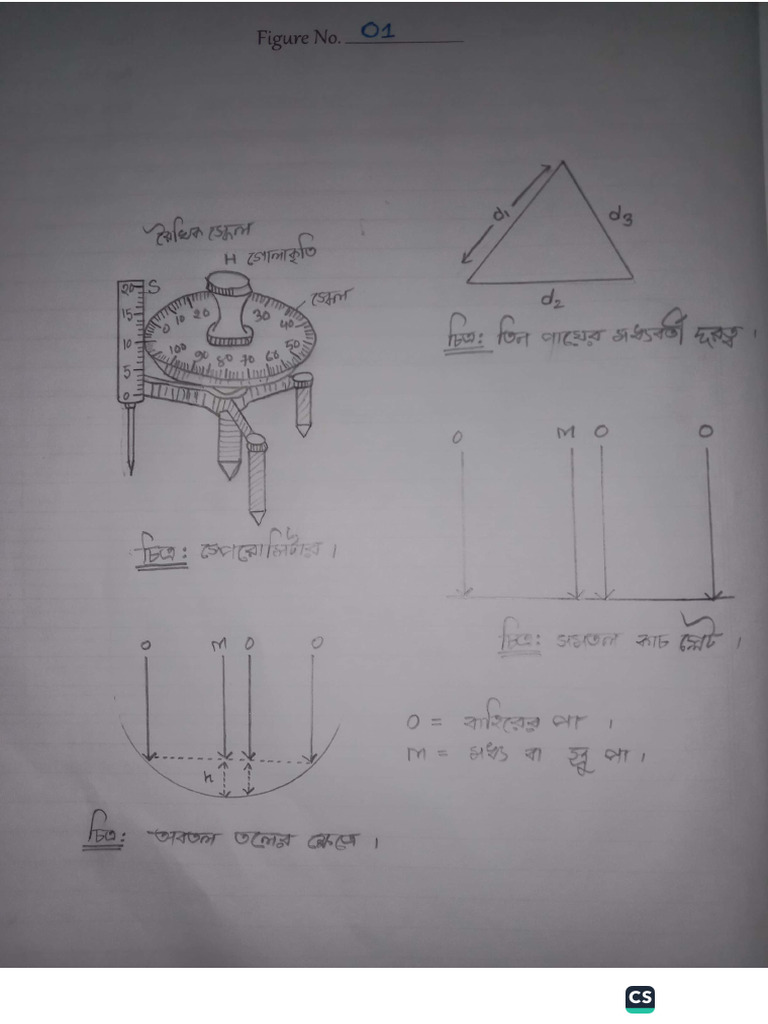 Figure No. 01
রৈখিক স্কেল
H গোলাকৃতি
স্কেল
20 S
15
10
5
0
0 10 20 30 40 50 60 70 80 90 100
চিত্র: স্পেরোমিটার।
d1
d3
d2
চিত্র: তিন পায়ের মধ্যবর্তী দূরত্ব।
O M O O
চিত্র: সমতল কাচ প্লেট।
O M O O
h
চিত্র: অবতল তলের ক্ষেত্রে।
O = বাহিরের পা।
M = মধ্য বা স্ক্রু পা।
CS